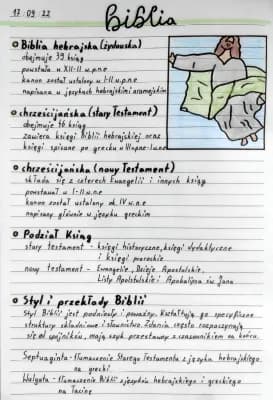 12.09.22
Biblia
Biblia hebrajska (żydowska)
obejmuje 39 ksiąg
powstała w XII-II w.p.n.e
kanon został ustalony w I-II w.p.n.e
napisana w językach hebrajskim i aramejskim
chrześcijańska (stary Testament)
obejmuje 46 ksiąg
zawiera księgi Biblii hebrajskiej oraz
księgi spisane po grecku w III w.p.ne-I w.ne
chrześcijańska (nowy Testament)
składa się z czterech Ewangelii i innych ksiąg
powstawał w I-II w.n.e
kanon został ustalony ok. IV w.n.e
napisany głównie w języku greckim
Podział Ksiąg
stary testament - księgi historyczne, księgi dydaktyczne
i księgi prorockie
nowy testament - Ewangelie, Dzieje Apostolskie,
Listy Apostolskie i Apokalipsa św. Jana
Styl i przekłady Biblii
Styl Biblii jest podniosły i poważny. Kształtują go specyficzne
struktury składniowe i słownictwo. Zdania często rozpoczynają
się od spójników, mają szyk przestawny z czasownikiem na końcu.
Septuaginta - tłumaczenie Starego Testamentu z języka hebrajskiego
na grecki
Wulgata - tłumaczenie Biblii z języków hebrajskiego i greckiego
na łacinę